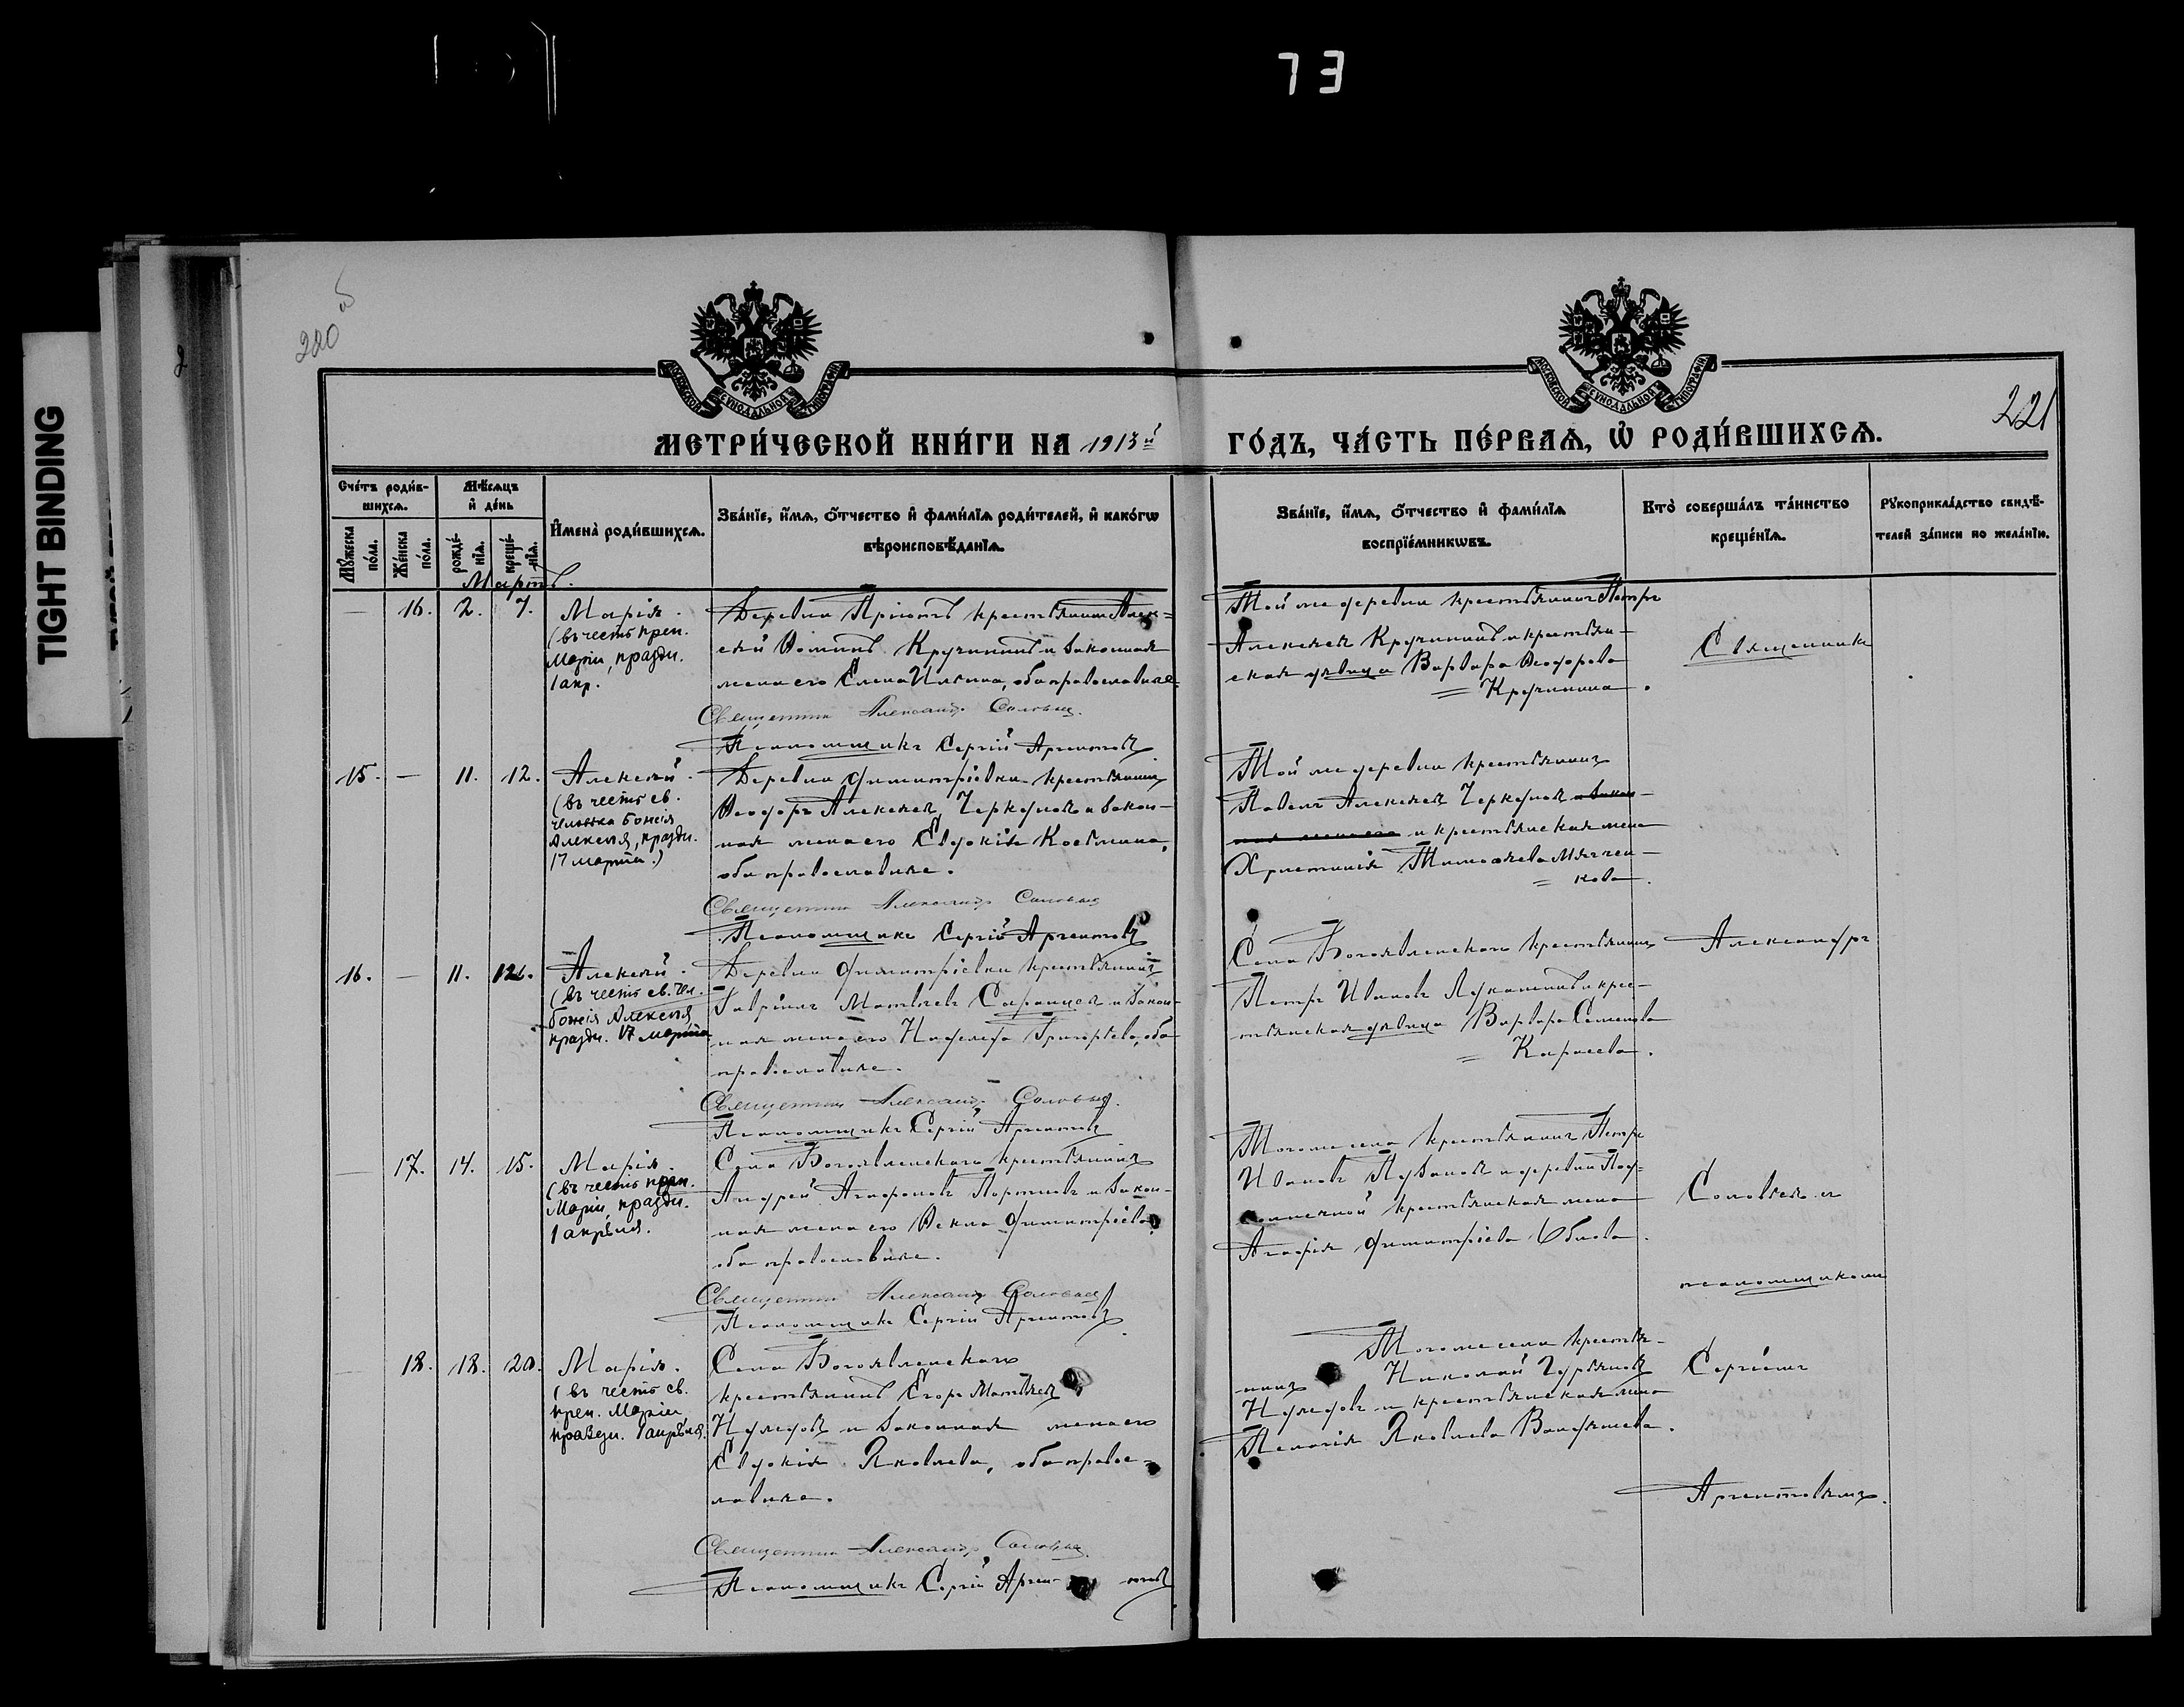 73
TIGHT BINDING
220 об
221
МОСКОВСКОЙ СѴНОДАЛЬНОЙ ТИПОГРАФІИ
МОСКОВСКОЙ СѴНОДАЛЬНОЙ ТИПОГРАФІИ
МЕТРИ́ЧЕСКОЙ КНИ́ГИ НА 1913й
ГО́ДЪ, ЧА́СТЬ ПЕ́РВАѦ, Ѽ РОДИ́ВШИХСѦ.
Сче́тъ роди́в-
шихсѧ.
Мѣ́сѧцъ
и҆ де́нь
Мꙋ́жеска
по́ла.
Же́нска
по́ла.
рожде́-
нїѧ.
креще́-
нїѧ.
И҆мена̀ роди́вшихсѧ.
Зва́нїе, и҆́мѧ, ѻ҆́тчество и҆ фами́лїѧ роди́телей, и҆ како́гѡ
вѣроисповѣ́данїѧ.
Зва́нїе, и҆́мѧ, ѻ҆́тчество и҆ фами́лїѧ
воспрїе́мникѡвъ.
Кто̀ соверша́лъ та́инство
креще́нїѧ.
Рꙋкоприкла́дство свидѣ́-
телей за́писи по жела́нїю.
Мартъ.
— 16. 2. 7.
Марія.
(въ честь преп.
Маріи, праздн.
1 апр.
Деревни Пріютъ крестьянинъ Алек-
сѣй Ѳоминъ Кручининъ и законная
жена его Елена Ильина, оба православные
Священникъ Александръ Соловьевъ.
Псаломщикъ Сергій Аргентовъ
Той же деревни крестьянинъ Петръ
Алексѣевъ Кручининъ и крестьян-
ская дѣвица Варвара Ѳеодорова
= Кручинина.
Священникъ
15. — 11. 12.
Алексѣй.
(въ честь св.
человѣка Божія
Алексѣя, праздн.
17 марта.)
Деревни Димитріевки крестьянинъ
Ѳеодоръ Алексѣевъ Черкуновъ и закон-
ная жена его Евдокія Косьмина,
оба православные.
Священникъ Александръ Соловьевъ
Псаломщикъ Сергій Аргентовъ
Той же деревни крестьянинъ
Павелъ Алексѣевъ Черкуновъ и закон-
ная жена его и крестьянская жена
Христинія Тимоѳеева Мягчен-
= кова.
16. — 11. 12.
Алексѣй.
(въ честь св. чел.
Божія Алексѣя,
праздн. 17 марта
Деревни Димитріевки крестьянинъ
Гавріилъ Матвѣевъ Саранцевъ и закон-
ная жена его Надежда Григорьева, оба
православные.
Священникъ Александръ Соловьевъ.
Псаломщикъ Сергій Аргентовъ
Села Богоявленскаго крестьянинъ
Петръ Ивановъ Лукашинъ и крес-
тьянская дѣвица Варвара Семенова
= Карасева.
Александръ
— 17. 14. 15.
Марія.
(въ честь преп.
Маріи, праздн.
1 апрѣля.
Села Богоявленскаго крестьянинъ
Андрей Агафоновъ Портновъ и закон-
ная жена его Ѳекла Димитріева,
оба православные.
Священникъ Александръ Соловьевъ
Псаломщикъ Сергій Аргентовъ
Того же села крестьянинъ Петръ
Ивановъ и деревни
крестьянская жена
Агафія Димитріева
Соловьевъ съ
псаломщикомъ
— 18. 18. 20.
Марія.
(въ честь св.
преп. Маріи
праздн. 1 апрѣля.
Села Богоявленскаго
крестьянинъ Егоръ Матвѣевъ
и законная жена его
Евдокія Яковлева, оба правос-
лавные.
Священникъ Александръ Соловьевъ
Псаломщикъ Сергій Арген- товъ
Того же села крестья-
нинъ Николай Гурьяновъ
и крестьянская жена
Пелагія Яковлева
Сергіемъ
Аргентовымъ.